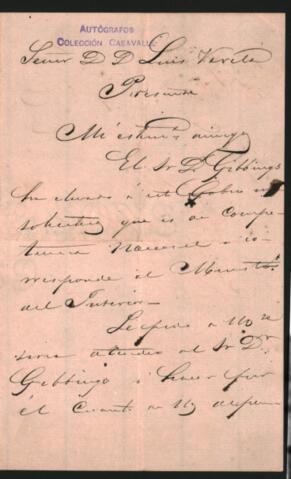 AUTÓGRAFOS
COLECCIÓN CASAVALLE
Señor D D Luis Varela
Presente
Mi estimado amigo
El Sr Dr Gibbings
ha elevado á este Gobierno
solicitud que es de compe-
tencia Nacional o co-
rresponde al Minist.
del Interior—
Le pido a
atender al Sr Dr
Gibbings i hacer por
él cuanto de